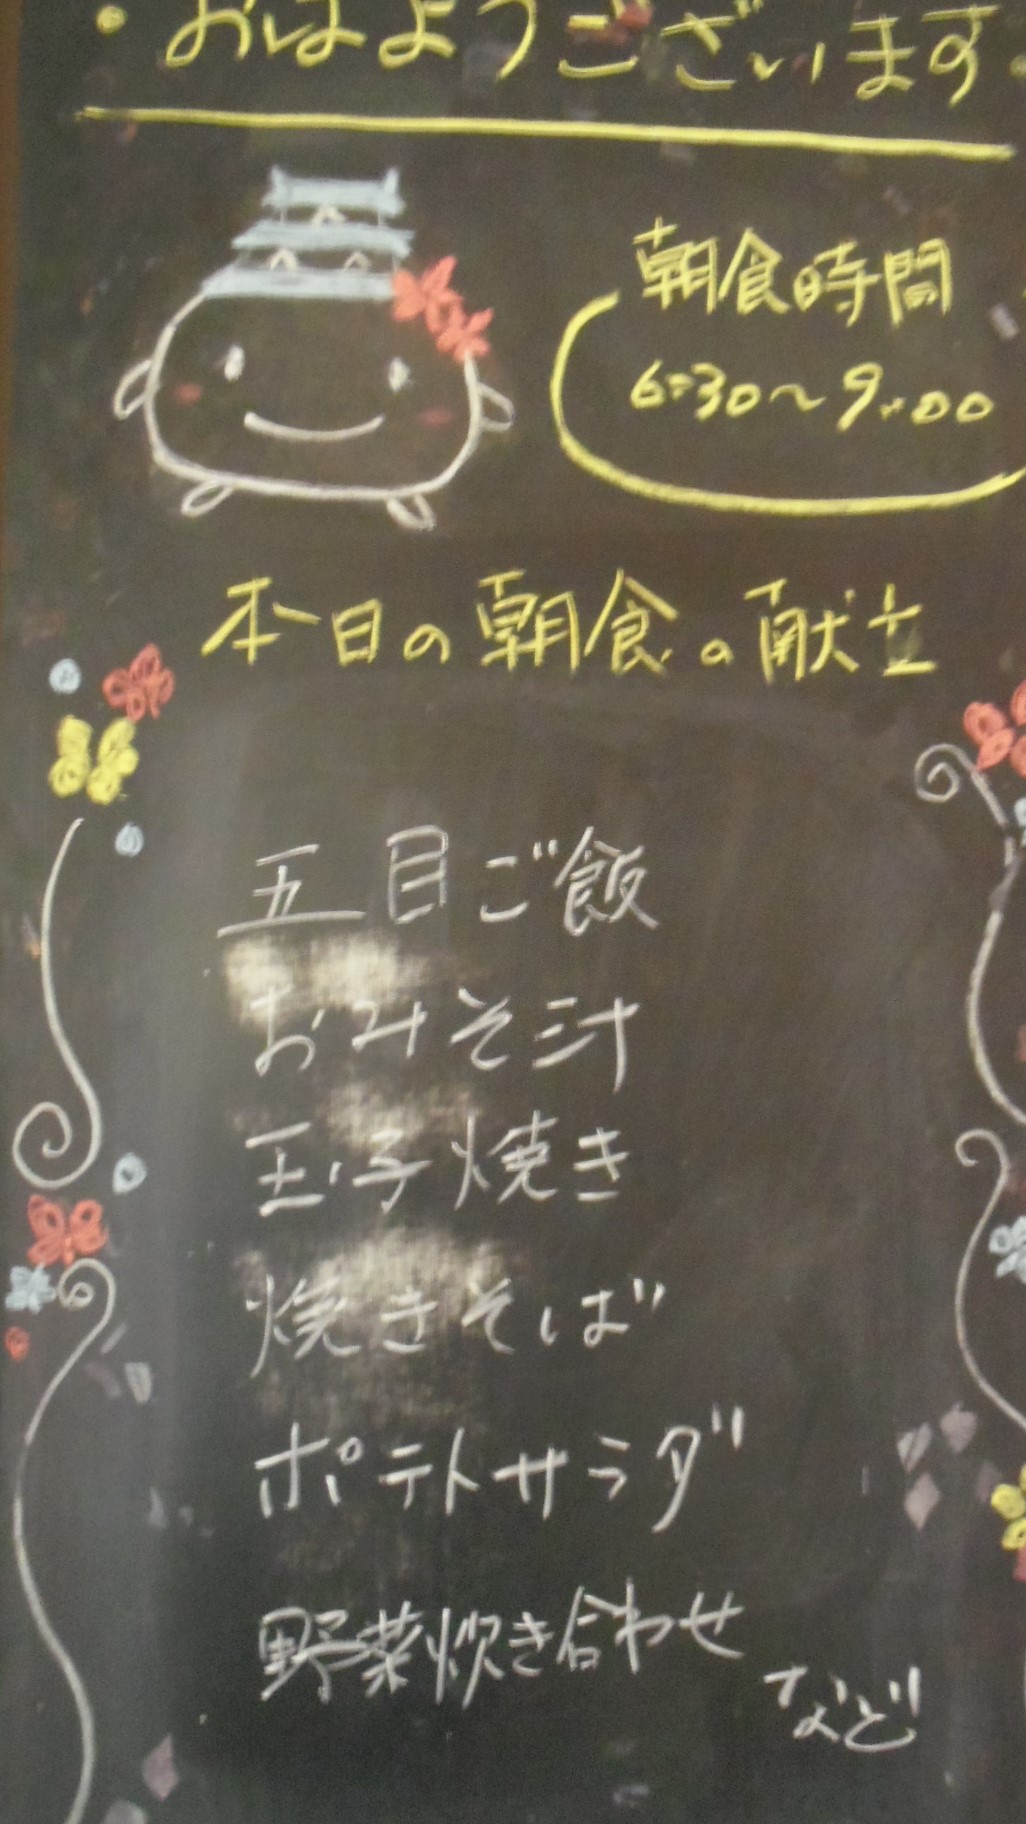 ・おはようございます。
朝食時間
6:30～9:00
本日の朝食の献立
五目ご飯
おみそ汁
玉子焼き
焼きそば
ポテトサラダ
野菜炊き合わせ
など